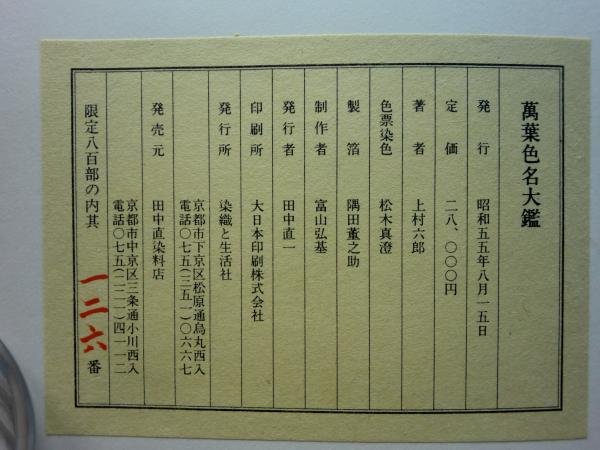 萬葉色名大鑑
発行 昭和五五年八月一五日
定価 二八、〇〇〇円
著者 上村六郎
色票染色 松木真澄
製箔 隅田薫之助
制作者 富山弘基
発行者 田中直一
印刷所 大日本印刷株式会社
発行所 染織と生活社
京都市下京区松原通烏丸西入
電話〇七五(三五一)〇六六七
発売元 田中直染料店
京都市中京区三条通小川西入
電話〇七五(二二一)四一一二
限定八百部の内其 一二六番